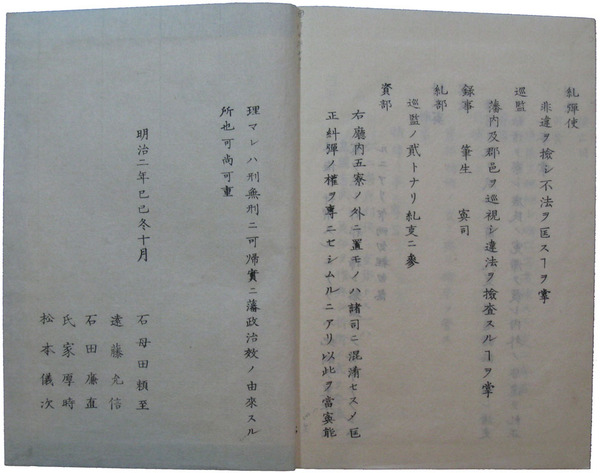 糺彈使
非違ヲ檢シ不法ヲ匡スヿヲ掌
巡監
藩内及郡邑ヲ巡視シ違法ヲ檢査スルヿヲ掌
録事 筆生 寅司
糺部
巡監ノ貳トナリ糺支ニ參
賓部
右廳内五寮ノ外ニ置モノハ諸司ニ混淆セスメ匡
正糾彈ノ權ヲ專ニセシムルニアリ以此ク當寅能
理マレハ刑無刑ニ可帰實ニ藩政治效ノ由來スル
所也可尚可重
明治二年巳巳冬十月
石母田頼至
遠藤允信
石田廉直
氏家厚時
松本儀次